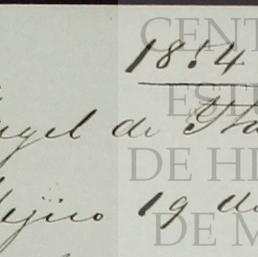 1854
de
Mejico 19 de
CENT
EST
DE HI
DE M